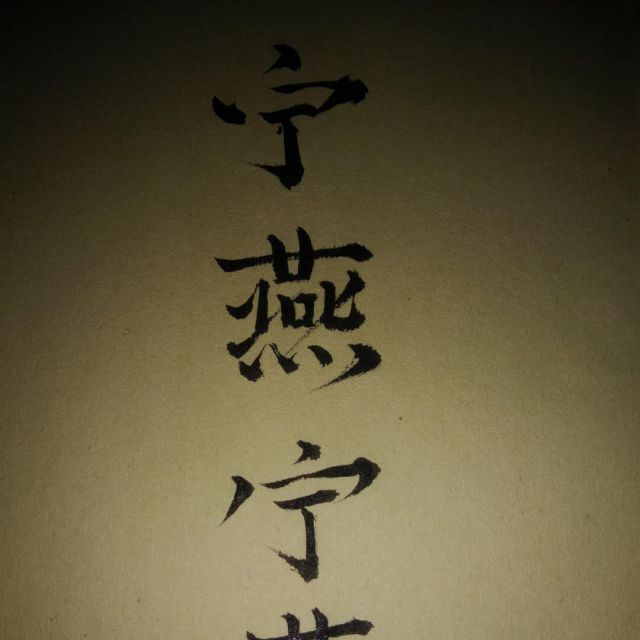 宁燕宁